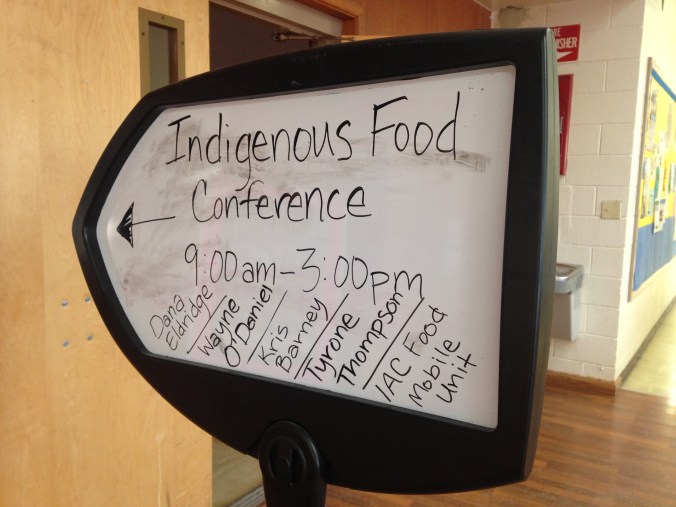 Indigenous Food
Conference
9:00am-3:00pm
Dana
Eldridge
Wayne
O'Daniel
Kris
Barney
Tyrone
Thompson
IAC Food
Mobile
Unit